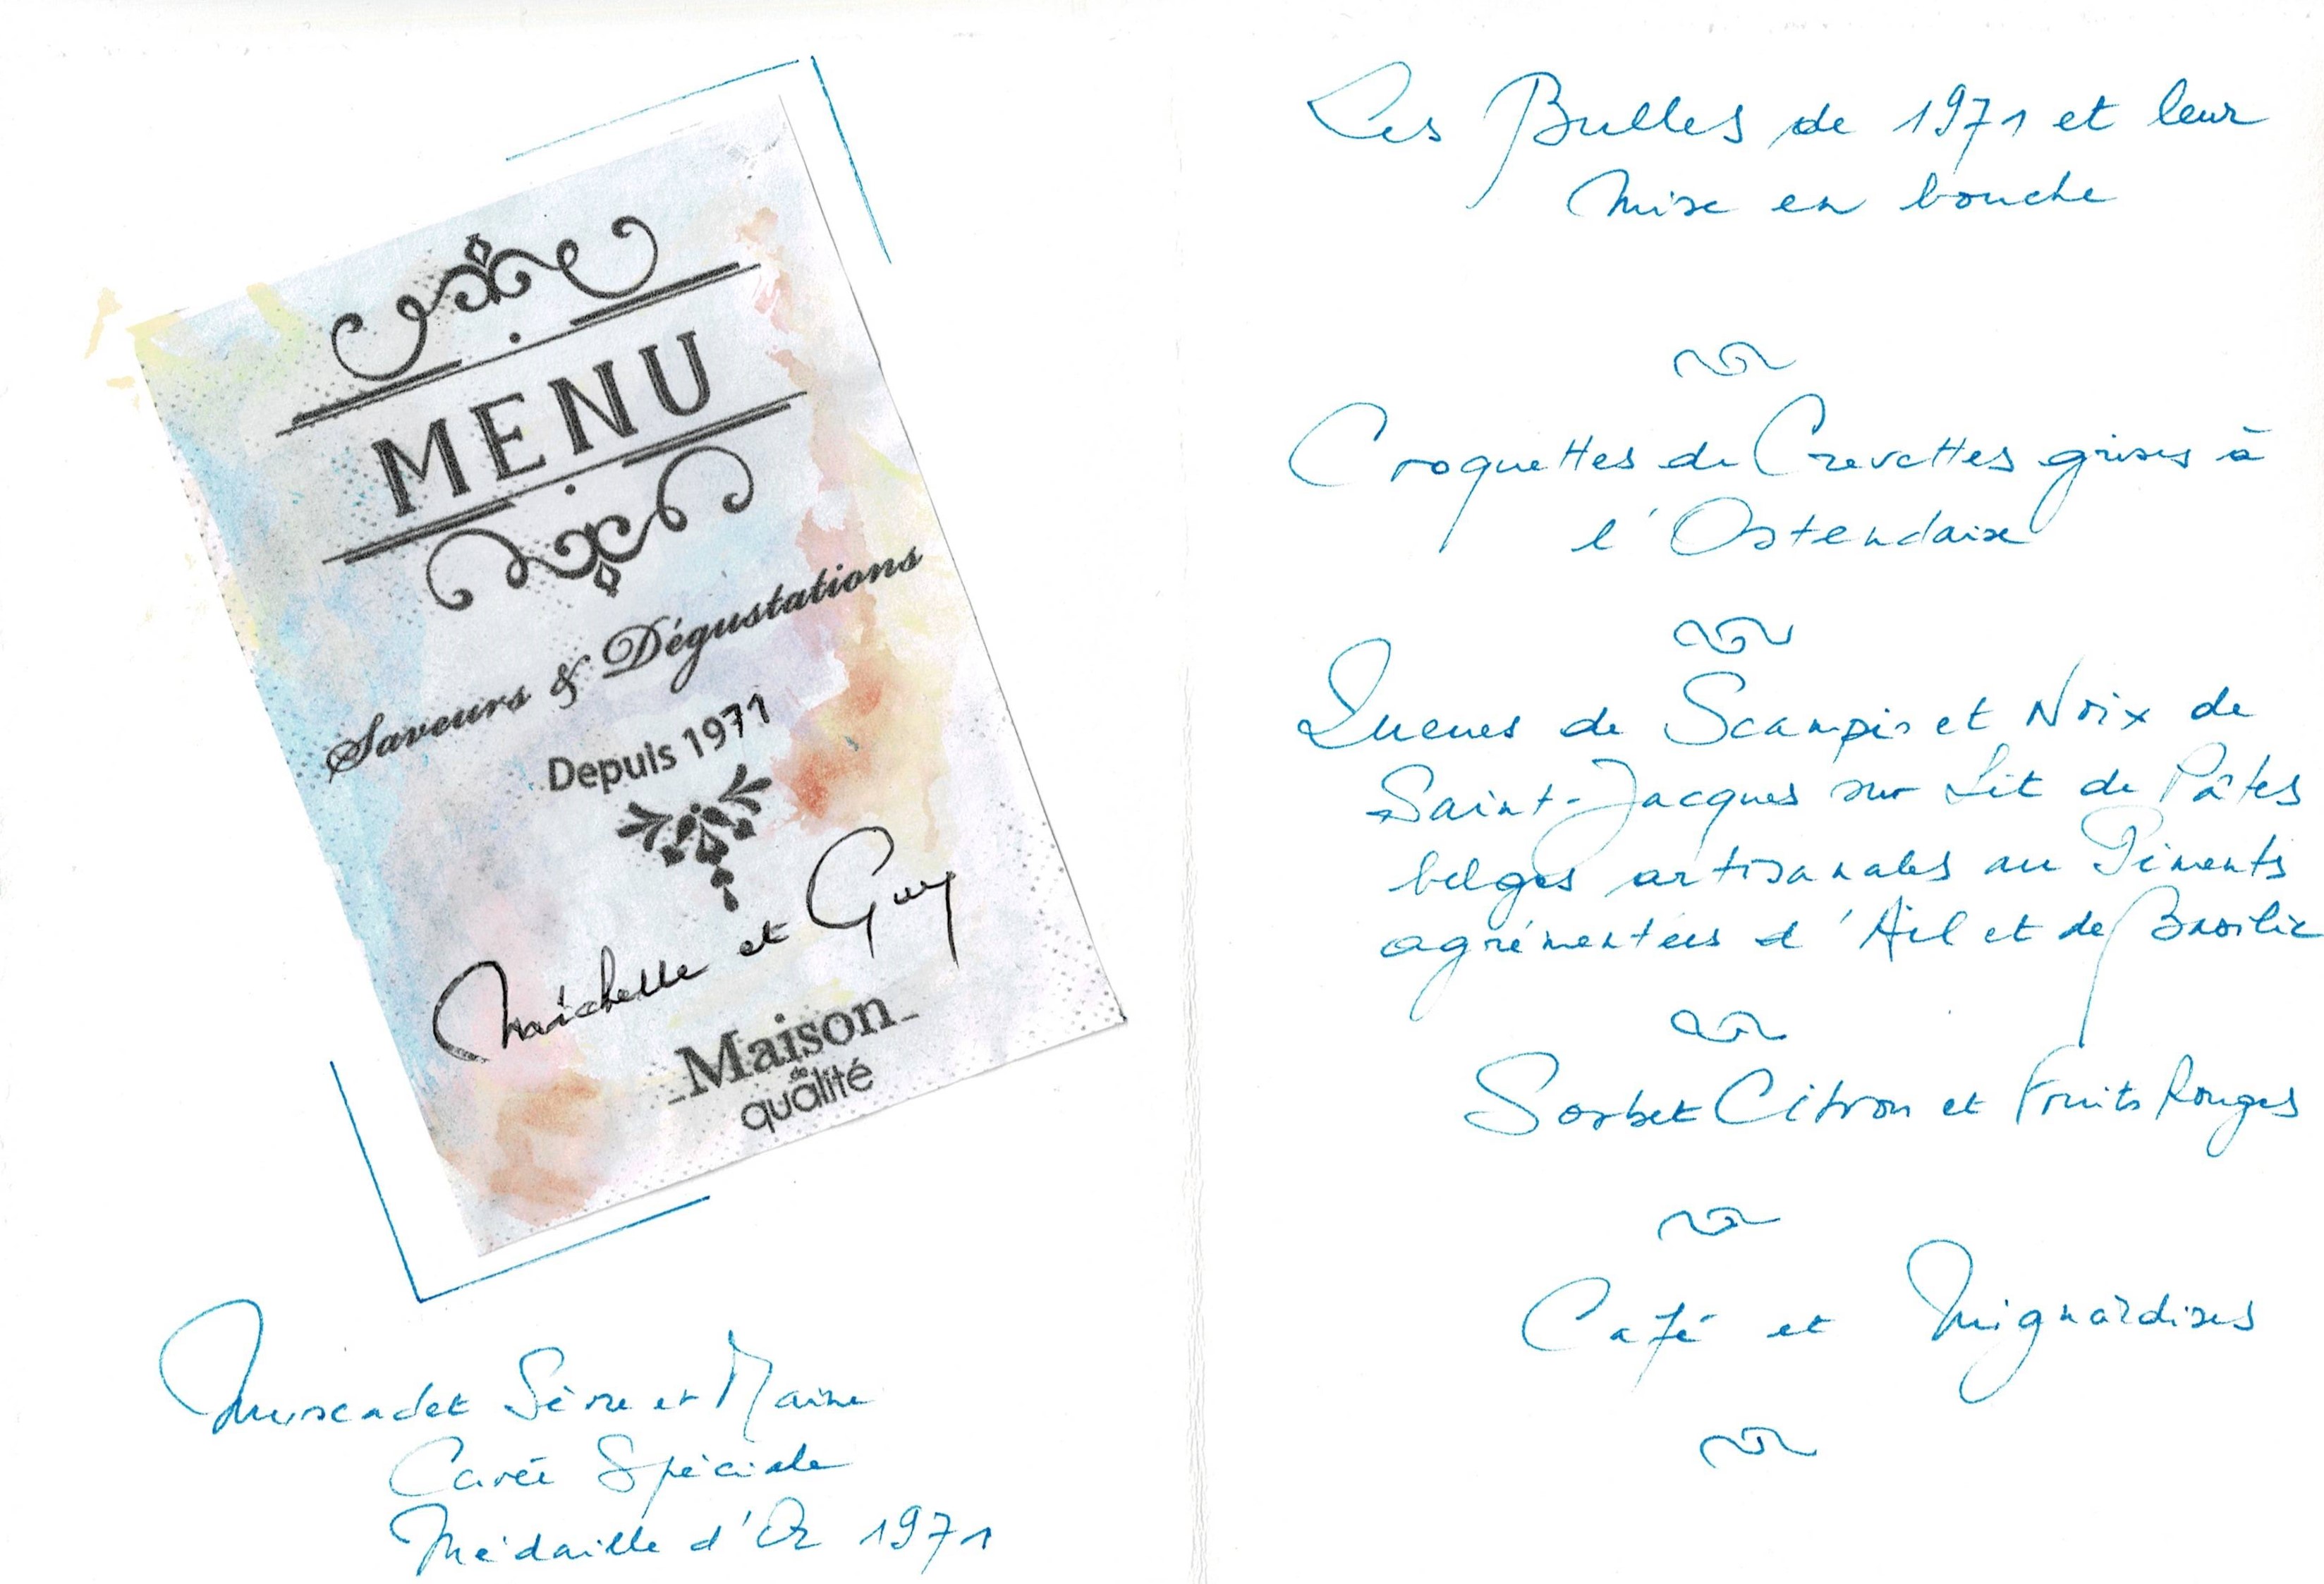 MENU
Saveurs & Dégustations
Depuis 1971
Michelle et Guy
Maison
de
qualité
Muscadet Sèvre et Maine
Cuvée Spéciale
Médaille d'Or 1971
Les Bulles de 1971 et leur
mise en bouche
Croquettes de Crevettes grises à
l'Ostendaise
Queues de Scampis et Noix de
Saint-Jacques sur Lit de Pâtes
belges artisanales au Piments
agrémentées d'Ail et de Basilic
Sorbet Citron et Fruits Rouges
Café et Mignardises